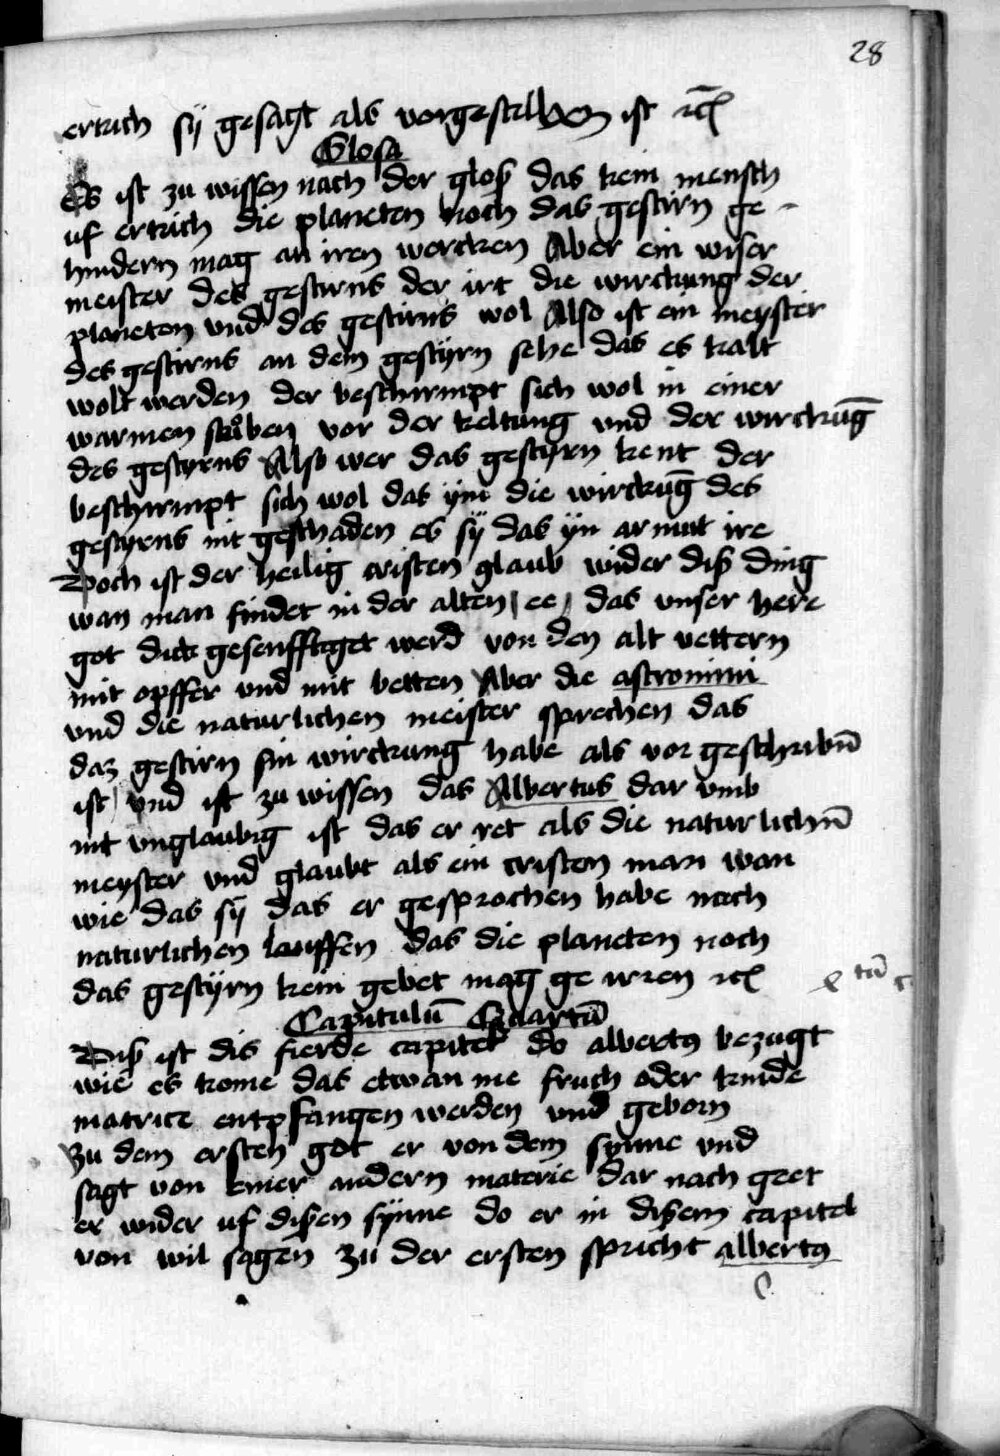 28
ertrich sÿ gesagt als vorgeschriben ist ꝛc̃
Glosa
Es ist zu wissen nach der gloß das kein mensch
uf ertrich die planeten noch das gestirn ge-
hindern mag an iren wercken Aber ein wiser
meister des gestirns der irt die wirckung der
planeten vnd des gestirns wol Also ist ein meyster
des gestirns an dem gestÿrn sehe das es kalt
wolt werden der beschirmpt sich wol in einer
warmen stůben vor der keltung vnd der wirckũg
des gestyrns Also wer das gestÿrn kent der
beschirmpt sich wol das ym die wirckũg des
gestyrns nit geschaden es sÿ das yn armut ire
Doch ist der heilig cristen glaub wider diß ding
wan man findet in der alten ee das vnser here
got dick gesenfftiget werd von den alt vettern
mit opffer vnd mit betten Aber die astronimi
vnd die naturlichen meister sprechen das
daz gestirn sin wirckung habe als vor geschribñ
ist vnd ist zu wissen das Albertus dar vmb
nit vnglaubig ist das er ret als die naturlichñ
meyster vnd glaubt als ein cristen man wan
wie das sÿ das er gesprochen habe nach
naturlichen lauffen das die planeten noch
das gestÿrn kein gebet mag ge irren ꝛc̃
Capitulũ Quartũ
Diß ist dis fierde capitel do albertꝰ bezugt
wie es kome das etwan me fruch oder kinde
matrice entpfangen werden vnd geborn
Zu dem ersten get er von dem synne vnd
sagt von einer andern materie dar nach geet
er wider uf dißen sÿnne do er in dißem capitel
von wil sagen Zu der ersten spricht albertꝰ